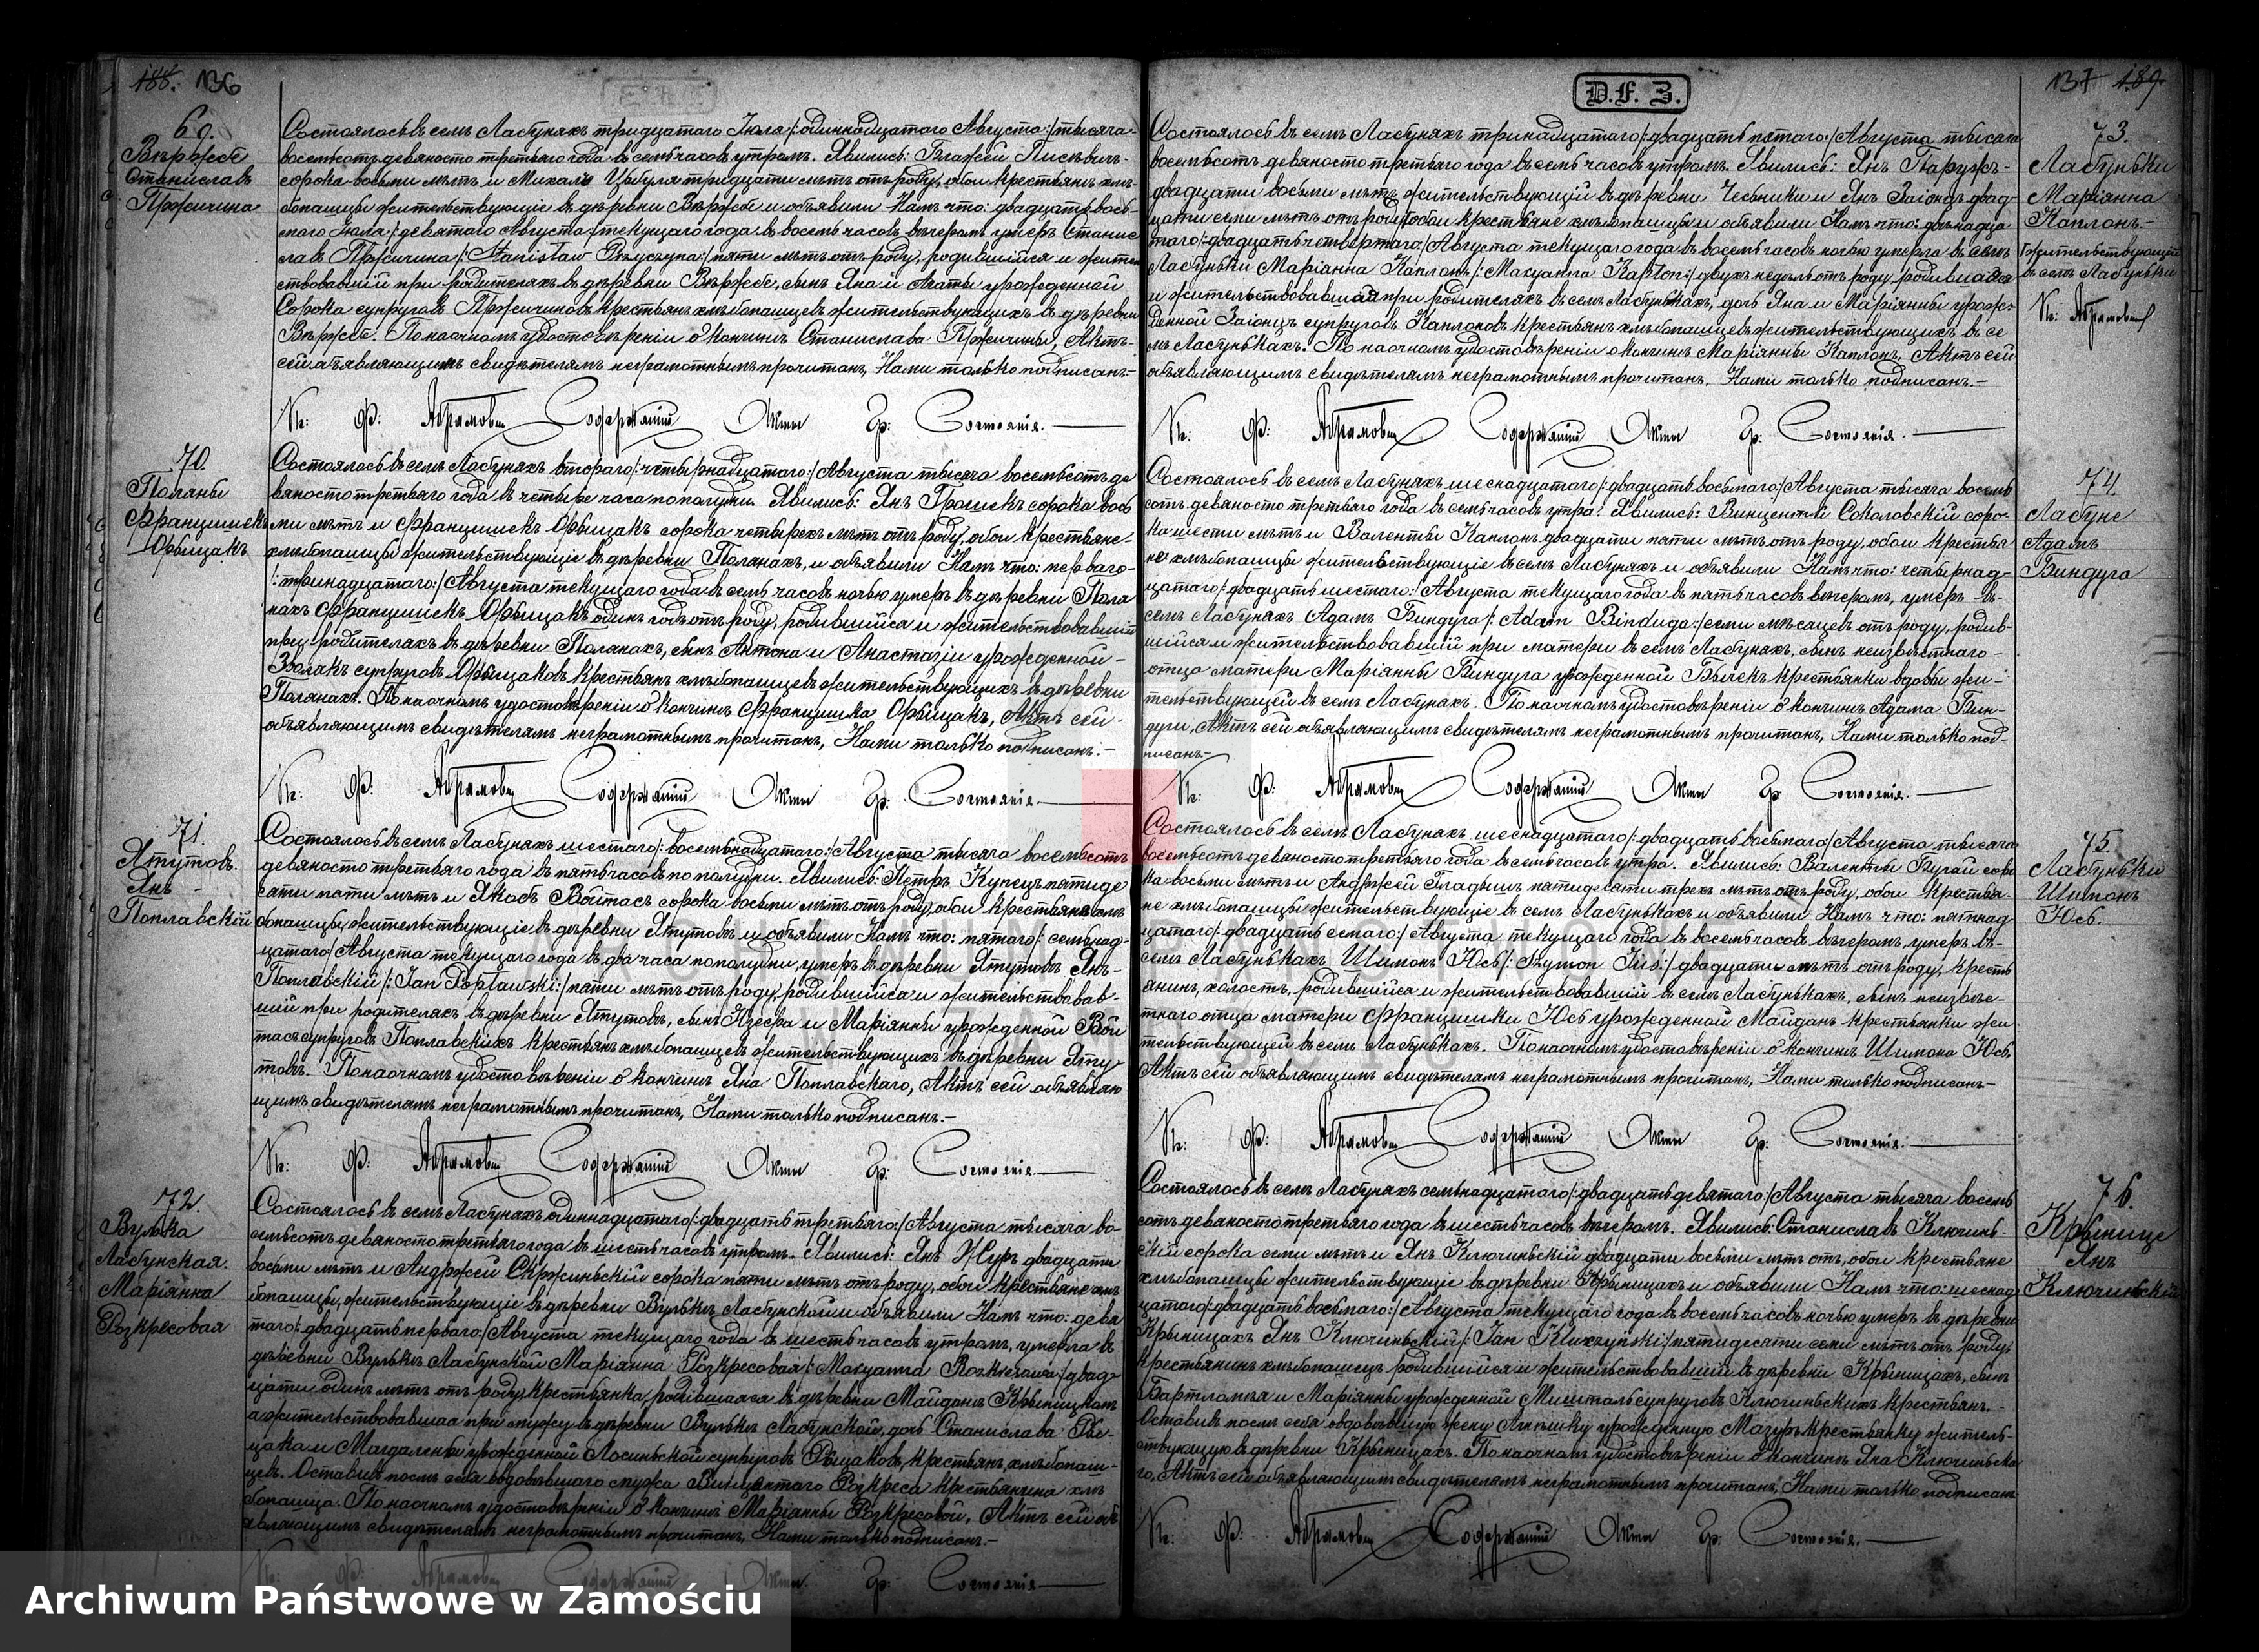 188. 136
69.
Вержбе
Станиславъ
Пржичина
Состоялось въ селѣ Лабуняхъ тридцатаго Іюля /:одиннадцатаго Августа:/ тысяча
восемьсотъ девяносто третьяго года въ семь часовъ утромъ. Явились: Блажей
сорока восьми лѣтъ и Михалъ Цыбуля тридцати лѣтъ отъ роду, обои крестьяне хлѣ-
бопашцы жительствующіе въ деревни Вержбе и объявили Намъ что: двадцать вось-
маго Іюля /:девятаго Августа:/ текущаго года въ восемь часовъ вечеромъ умеръ Станис
лавъ Пржичина /:Stanisław Przyczyna:/ пяти лѣтъ отъ роду, родившійся и житель
ствовавшій при родителяхъ въ деревни Вержбе, сынъ Яна и Агаты урожденной
Сорока супруговъ Пржичиновъ крестьянъ хлѣбопашцевъ жительствующихъ въ деревни
Вержбе. По наочномъ удостовѣреніи о кончинѣ Станислава Пржичины, Актъ
сей объявляющимъ свидѣтелямъ неграмотнымъ прочитанъ, Нами только подписанъ.-
Кс: Ф: Абрамовичъ Содержащій Акты Гр: Состоянія.
70.
Поляны
Францишекъ
Орыщакъ
Состоялось въ селѣ Лабуняхъ втораго /:четырнадцатаго:/ Августа тысяча восемьсотъ де
вяносто третьяго года въ четыре часа пополудни. Явились: Янъ Грошекъ сорока вось
ми лѣтъ и Францишекъ Орыщакъ сорока четырехъ лѣтъ отъ роду, обои крестьяне
хлѣбопашцы жительствующіе въ деревни Полянахъ, и объявили Намъ что: перваго
/:тринадцатаго:/ Августа текущаго года въ семь часовъ ночью умеръ въ деревни Поля
нахъ Францишекъ Орыщакъ одинъ годъ отъ роду, родившійся и жительствовавшій
при родителяхъ въ деревни Полянахъ, сынъ Антона и Анастазіи урожденной
супруговъ Орыщаковъ крестьянъ хлѣбопашцевъ жительствующихъ въ деревни
Полянахъ. По наочномъ удостовѣреніи о кончинѣ Францишка Орыщакъ, Актъ сей
объявляющимъ свидѣтелямъ неграмотнымъ прочитанъ, Нами только подписанъ.-
Кс: Ф: Абрамовичъ Содержащій Акты Гр: Состоянія.
71.
Ятутовъ.
Янъ
Поплавскій
Состоялось въ селѣ Лабуняхъ шестаго /:восемьнадцатаго:/ Августа тысяча восемьсотъ
девяносто третьяго года въ пять часовъ пополудни. Явились: Петръ Купецъ пятиде
сяти пяти лѣтъ и Якобъ Войтасъ сорока восьми лѣтъ отъ роду, обои крестьяне хлѣ
бопашцы жительствующіе въ деревни Ятутовѣ и объявили Намъ что: пятаго /:семьнад-
цатаго:/ Августа текущаго года въ два часа пополудни, умеръ въ деревни Ятутовѣ Янъ
Поплавскій /:Jan Popławski:/ пяти лѣтъ отъ роду, родившійся и жительствовав-
шій при родителяхъ въ деревни Ятутовѣ, сынъ Юзефа и Маріянны урожденной Вой
тасъ супруговъ Поплавскихъ крестьянъ хлѣбопашцевъ жительствующихъ въ деревни Яту
товѣ. По наочномъ удостовѣреніи о кончинѣ Яна Поплавскаго, Актъ сей объявляю
щимъ свидѣтелямъ неграмотнымъ прочитанъ, Нами только подписанъ.-
Кс: Ф: Абрамовичъ Содержащій Акты Гр: Состоянія.
72.
Вулька
Лабуньская.
Маріянна
Розкресовая
Состоялось въ селѣ Лабуняхъ одиннадцатаго /:двадцать третьяго:/ Августа тысяча во-
семьсотъ девяносто третьяго года въ шесть часовъ утромъ. Явились: Янъ Журъ двадцати
восьми лѣтъ и Андржей Скржиньскій сорока пяти лѣтъ отъ роду, обои крестьяне хлѣ
бопашцы, жительствующіе въ деревни Вулькѣ Лабуньской и объявили Намъ что: девя
таго /:двадцать перваго:/ Августа текущаго года въ шесть часовъ утромъ, умерла въ
деревни Вулькѣ Лабуньской Маріянна Розкресовая /:Maryanna Rozkresowa:/ двад-
цати одинъ лѣтъ отъ роду, крестьянка, родившаяся въ деревни Майданѣ Крыницкомъ
а жительствовавшая при мужу въ деревни Вулькѣ Лабуньской, дочь Станислава
и Магдалены урожденной Лосиньской супруговъ крестьянъ хлѣбопаш-
цевъ. Оставивъ послѣ себя овдовѣвшаго мужа Винцентаго Розкреса крестьянина хлѣ
бопашца. По наочномъ удостовѣреніи о кончинѣ Маріянны Розкресовой, Актъ сей объ
являющимъ свидѣтелямъ неграмотнымъ прочитанъ, Нами только подписанъ.-
Кс: Ф: Абрамовичъ Содержащій Акты Гр: Состоянія
D.F. 3.
137 189.
73.
Лабуньки
Маріянна
Каплонъ.
жительствующей
въ селѣ Лабуньки
Кс: Абрамовичъ
Состоялось въ селѣ Лабуняхъ тринадцатаго /:двадцать пятаго:/ Августа тысяча
восемьсотъ девяносто третьяго года въ семь часовъ утромъ. Явились: Янъ
двадцати восьми лѣтъ жительствующій въ деревни Чесники и Янъ Заіонцъ двад-
цати семи лѣтъ отъ роду обои крестьяне хлѣбопашцы и объявили Намъ что: двѣнадца
таго /:двадцать четвертаго:/ Августа текущаго года въ восемь часовъ ночью умерла въ селѣ
Лабуньки Маріянна Каплонъ /:Maryanna Kapłon:/ двухъ недѣль отъ роду, родившаяся
и жительствовавшая при родителяхъ въ селѣ Лабунькахъ, дочь Яна и Маріянны урож-
денной Заіонцъ супруговъ Каплоновъ крестьянъ хлѣбопашцевъ жительствующихъ въ се
лѣ Лабунькахъ. По наочномъ удостовѣреніи о кончинѣ Маріянны Каплонъ, Актъ сей
объявляющимъ свидѣтелямъ неграмотнымъ прочитанъ, Нами только подписанъ.-
Кс: Ф: Абрамовичъ Содержащій Акты Гр: Состоянія.
74.
Лабуне
Адамъ
Биндуга
Состоялось въ селѣ Лабуняхъ шеснадцатаго /:двадцать восьмаго:/ Августа тысяча восемь
сотъ девяносто третьяго года въ семь часовъ утра. Явились: Винцентій Соколовскій соро-
ка шести лѣтъ и Валенты Каплонъ двадцати пяти лѣтъ отъ роду, обои крестья
не хлѣбопашцы жительствующіе въ селѣ Лабуняхъ и объявили Намъ что: четырнад-
цатаго /:двадцать шестаго:/ Августа текущаго года въ пять часовъ вечеромъ, умеръ въ
селѣ Лабуняхъ Адамъ Биндуга /:Adam Binduga:/ семи мѣсяцевъ отъ роду, родив-
шійся и жительствовавшій при матери въ селѣ Лабуняхъ, сынъ неизвѣстнаго
отца матери Маріянны Биндуга урожденной Былекъ крестьянки вдовы жи-
тельствующей въ селѣ Лабуняхъ. По наочномъ удостовѣреніи о кончинѣ Адама Бин-
дуги, Актъ сей объявляющимъ свидѣтелямъ неграмотнымъ прочитанъ, Нами только под-
писанъ.-
Кс: Ф: Абрамовичъ Содержащій Акты Гр: Состоянія.
75.
Лабуньки
Шимонъ
Юсь.
Состоялось въ селѣ Лабуняхъ шеснадцатаго /:двадцать восьмаго:/ Августа тысяча
восемьсотъ девяносто третьяго года въ семь часовъ утра. Явились: Валенты Бугай соро
ка восьми лѣтъ и Андржей Гладышъ пятидесяти трехъ лѣтъ отъ роду, обои крестья-
не хлѣбопашцы жительствующіе въ селѣ Лабунькахъ и объявили Намъ что: пятнад-
цатаго /:двадцать семаго:/ Августа текущаго года въ восемь часовъ вечеромъ, умеръ въ
селѣ Лабунькахъ Шимонъ Юсь /:Szymon Juś:/ двадцати лѣтъ отъ роду, кресть
янинъ, холостъ, родившійся и жительствовавшій въ селѣ Лабунькахъ, сынъ неизвѣс-
тнаго отца матери Францишки Юсь урожденной Майданъ крестьянки жи
тельствующей въ селѣ Лабунькахъ. По наочномъ удостовѣреніи о кончинѣ Шимона Юсь,
Актъ сей объявляющимъ свидѣтелямъ неграмотнымъ прочитанъ, Нами только подписанъ-
Кс: Ф: Абрамовичъ Содержащій Акты Гр: Состоянія.
76.
Крынице
Янъ
Ключиньскій
Состоялось въ селѣ Лабуняхъ семьнадцатаго /:двадцать девятаго:/ Августа тысяча восемь
сотъ девяносто третьяго года въ шесть часовъ вечеромъ. Явились: Станиславъ Ключинь-
скій сорока семи лѣтъ и Янъ Ключиньскій двадцати восьми лѣтъ отъ, обои крестьяне
хлѣбопашцы жительствующіе въ деревни Крыницахъ и объявили Намъ что: шеснад
цатаго /:двадцать восьмаго:/ Августа текущаго года въ восемь часовъ ночью умеръ въ деревни
Крыницахъ Янъ Ключиньскій /:Jan Kluczyński:/ пятидесяти семи лѣтъ отъ роду,
крестьянинъ хлѣбопашецъ родившійся и жительствовавшій въ деревни Крыницахъ, сынъ
Бартломея и Маріянны урожденной супруговъ Ключиньскихъ крестьянъ.-
Оставивъ послѣ себя овдовѣвшую жену Агнѣшку урожденную Мазуръ крестьянку житель-
ствующую въ деревни Крыницахъ. По наочномъ удостовѣреніи о кончинѣ Яна Ключиньска
го, Актъ сей объявляющимъ свидѣтелямъ неграмотнымъ прочитанъ, Нами только подписанъ
Кс: Ф: Абрамовичъ Содержащій Акты Гр: Состоянія.
Archiwum Państwowe w Zamościu